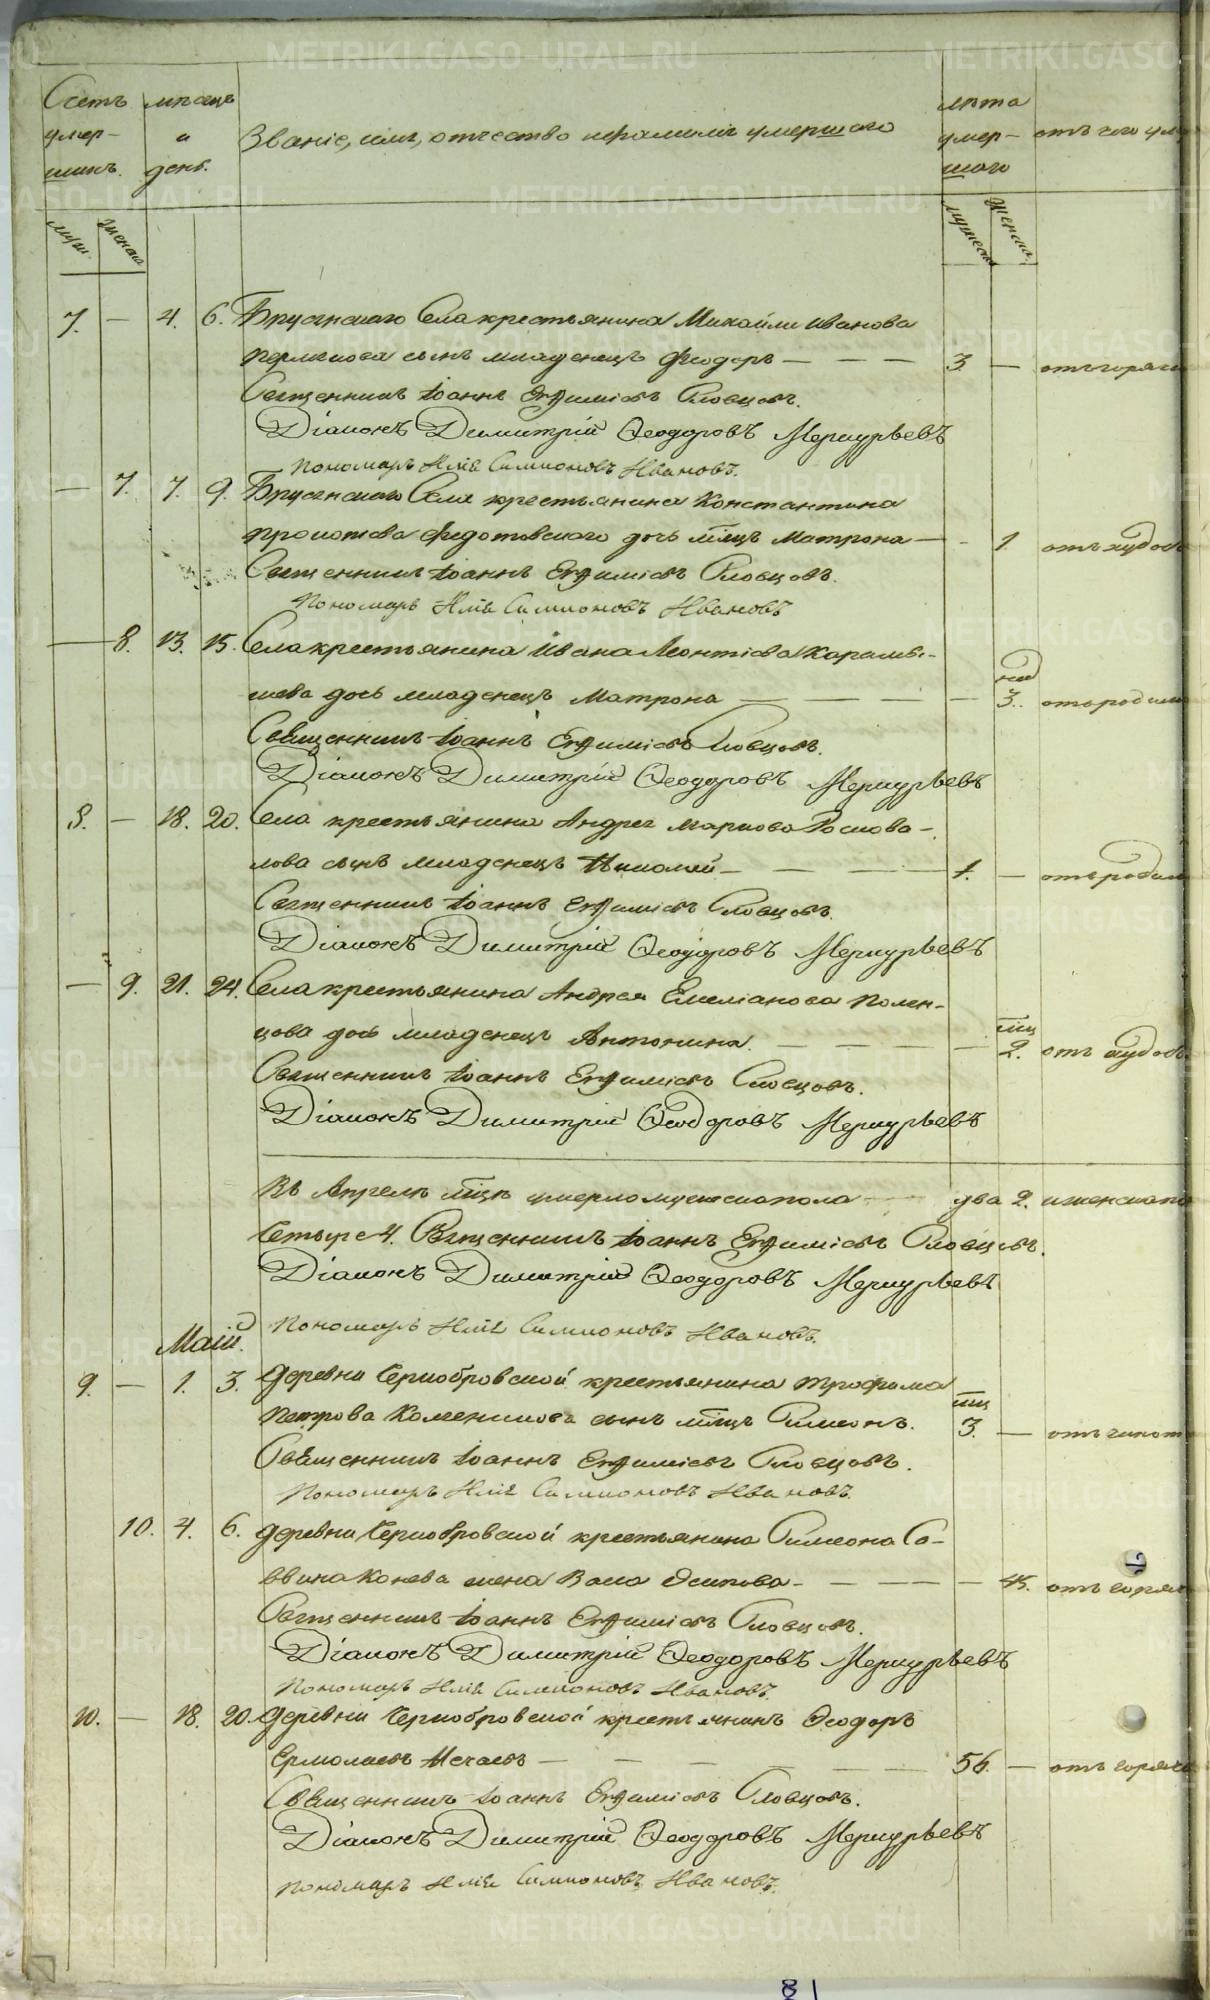 METRIKI.GASO-URAL.RU
Счетъ умер- шихъ.
мѣсяцъ и день.
Званіе, имя, отчество и фамилія умершаго
лѣта умер- шаго
отъ чего ум
муж. женска
мужеска женска.
7. — 4. 6. Брусянскаго Села крестьянина Михайли Иванова
сынъ младенецъ Феодоръ — — — — 3. — отъ горяч
Священникъ Іоаннъ Евфиміевъ Словцовъ.
Діаконъ Димитрій Ѳеодоровъ Меркурьевъ
Пономарь Илія Симионовъ Ивановъ.
— 7. 7. 9. Брусянскаго Села крестьянина Константина
Федотовскаго дочь млнцъ Матрона — - 1. отъ худоб
Священникъ Іоаннъ Евфиміевъ Словцовъ.
Пономарь Илія Симионовъ Ивановъ
— 8. 13. 15. Села крестьянина Ивана Леонтіева Карамы-
нед
шева дочь младенецъ Матрона — — — — 3. отъ родим
Священникъ Іоаннъ Евфиміевъ Словцовъ.
Діаконъ Димитрій Ѳеодоровъ Меркурьевъ
8. — 18. 20. Села крестьянина Андрея Маркова Коснова-
лова сынъ младенецъ Николай — — — — 1. — отъ родим
Священникъ Іоаннъ Евфиміевъ Словцовъ.
Діаконъ Димитрій Ѳеодоровъ Меркурьевъ
— 9. 21. 24. Села крестьянина Андрея Емеліанова Полен-
мц
цова дочь младенецъ Антонина. — — — — 2. отъ худоб
Священникъ Іоаннъ Евфиміевъ Словцовъ.
Діаконъ Димитрій Ѳеодоровъ Меркурьевъ
Въ Апрелѣ мцѣ умерло мужеска пола — два 2. и женска по
Четыре 4. Священникъ Іоаннъ Евфиміевъ Словцовъ.
Діаконъ Димитрій Ѳеодоровъ Меркурьевъ
Пономарь Илія Симионовъ Ивановъ.
Маій.
9. — 1. 3. Деревни Чернобровской крестьянина Трофима
мц
Петрова сынъ млнцъ Симеонъ. 3. — отъ
Священникъ Іоаннъ Евфиміевъ Словцовъ.
Пономарь Илія Симионовъ Ивановъ.
10. 4. 6. Деревни Чернобровской крестьянина Симеона Са-
ввина Конева жена Васа Осипова — — — — 45. отъ горяч
Священникъ Іоаннъ Евфиміевъ Словцовъ.
Діаконъ Димитрій Ѳеодоровъ Меркурьевъ
Пономарь Илія Симионовъ Ивановъ.
10. — 18. 20. Деревни Чернобровской крестьянинъ Ѳеодоръ
Ермолаевъ Нечаевъ — — — — 56. — отъ горяч
Священникъ Іоаннъ Евфиміевъ Словцовъ.
Діаконъ Димитрій Ѳеодоровъ Меркурьевъ
Пономарь Илія Симионовъ Ивановъ.
81